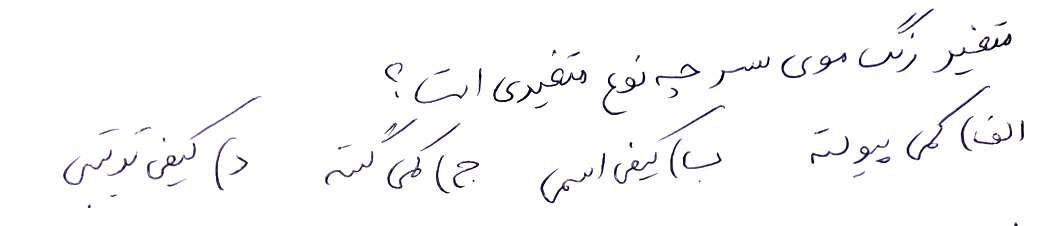 متغیر رنگ موی سر چه نوع متغیری است؟
الف) کمی پیوسته ب) کیفی اسمی ج) کمی گسسته د) کیفی ترتیبی